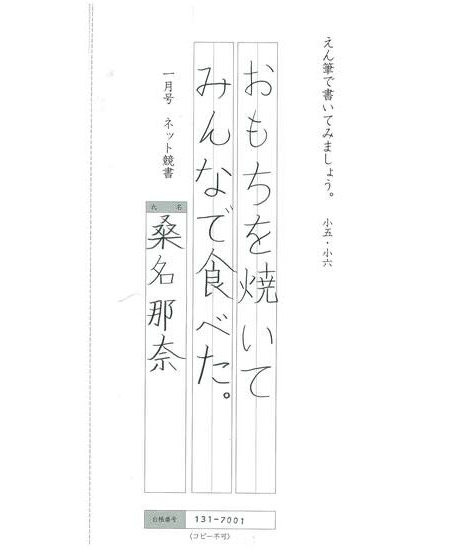 えん筆で書いてみましょう。 小五・小六
おもちを焼いて
みんなで食べた。
一月号 ネット競書
氏名
桑名那奈
台帳番号 131-7001
(コピー不可)